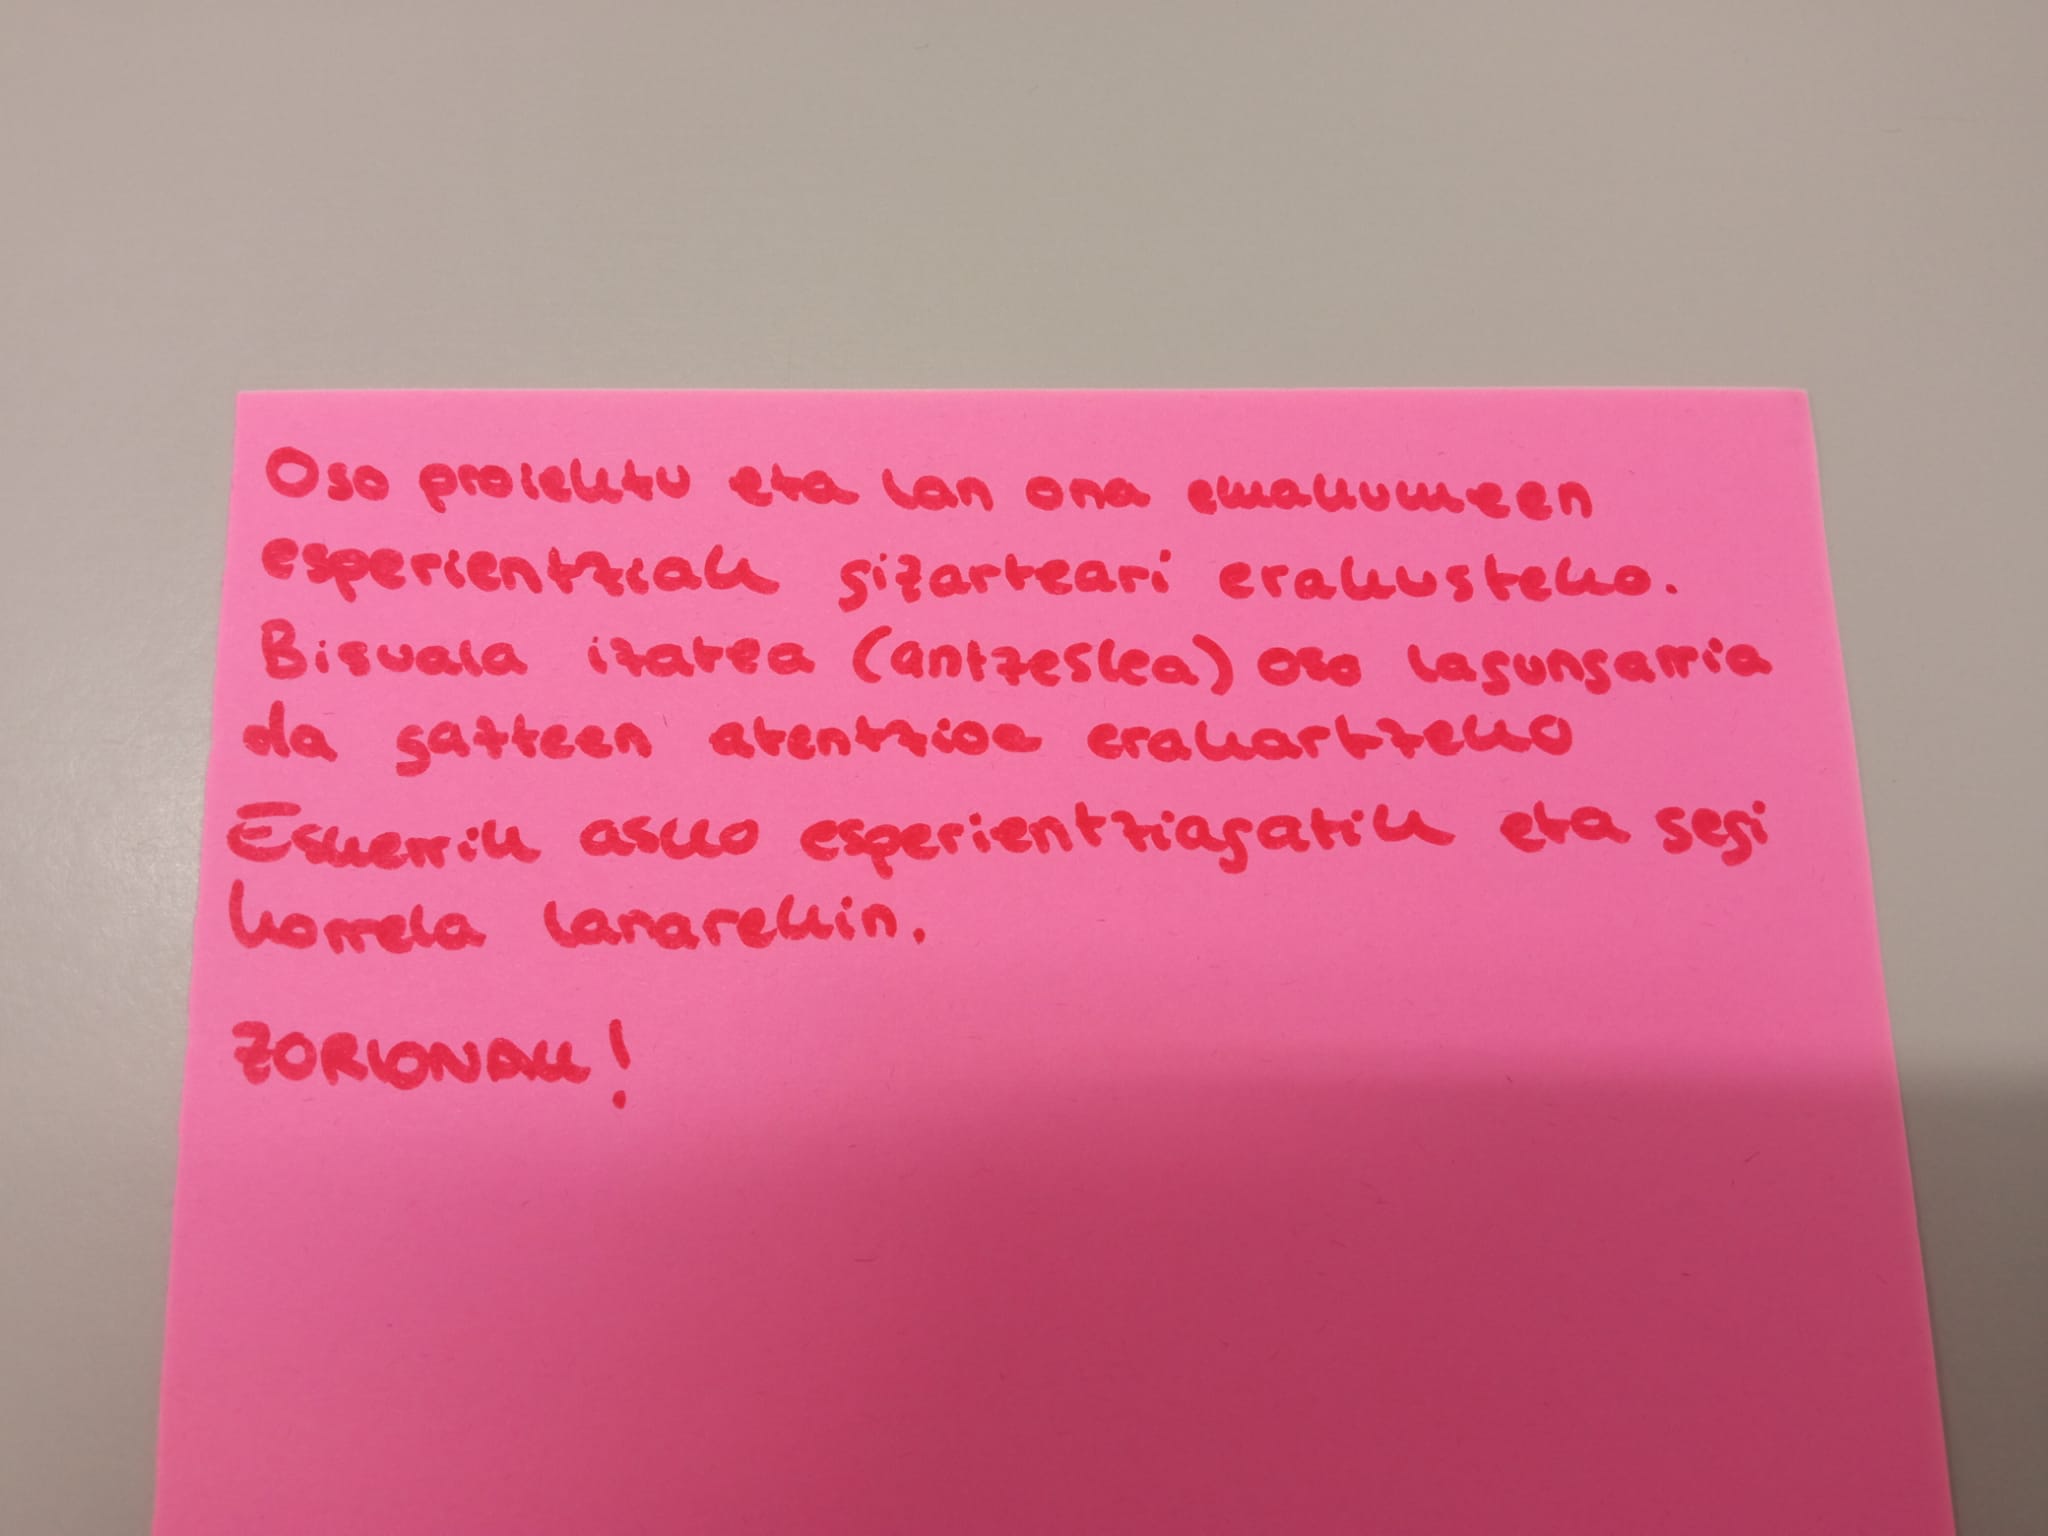 Oso proiektu eta lan ona emakumeen
esperientziak gizarteari erakusteko.
Bisuala izatea (antzeslea) oso lagungarria
da gazteen atentzioa erakartzeko
Eskerrik asko esperientziagatik eta segi
horrela lanarekin.
ZORIONAK!